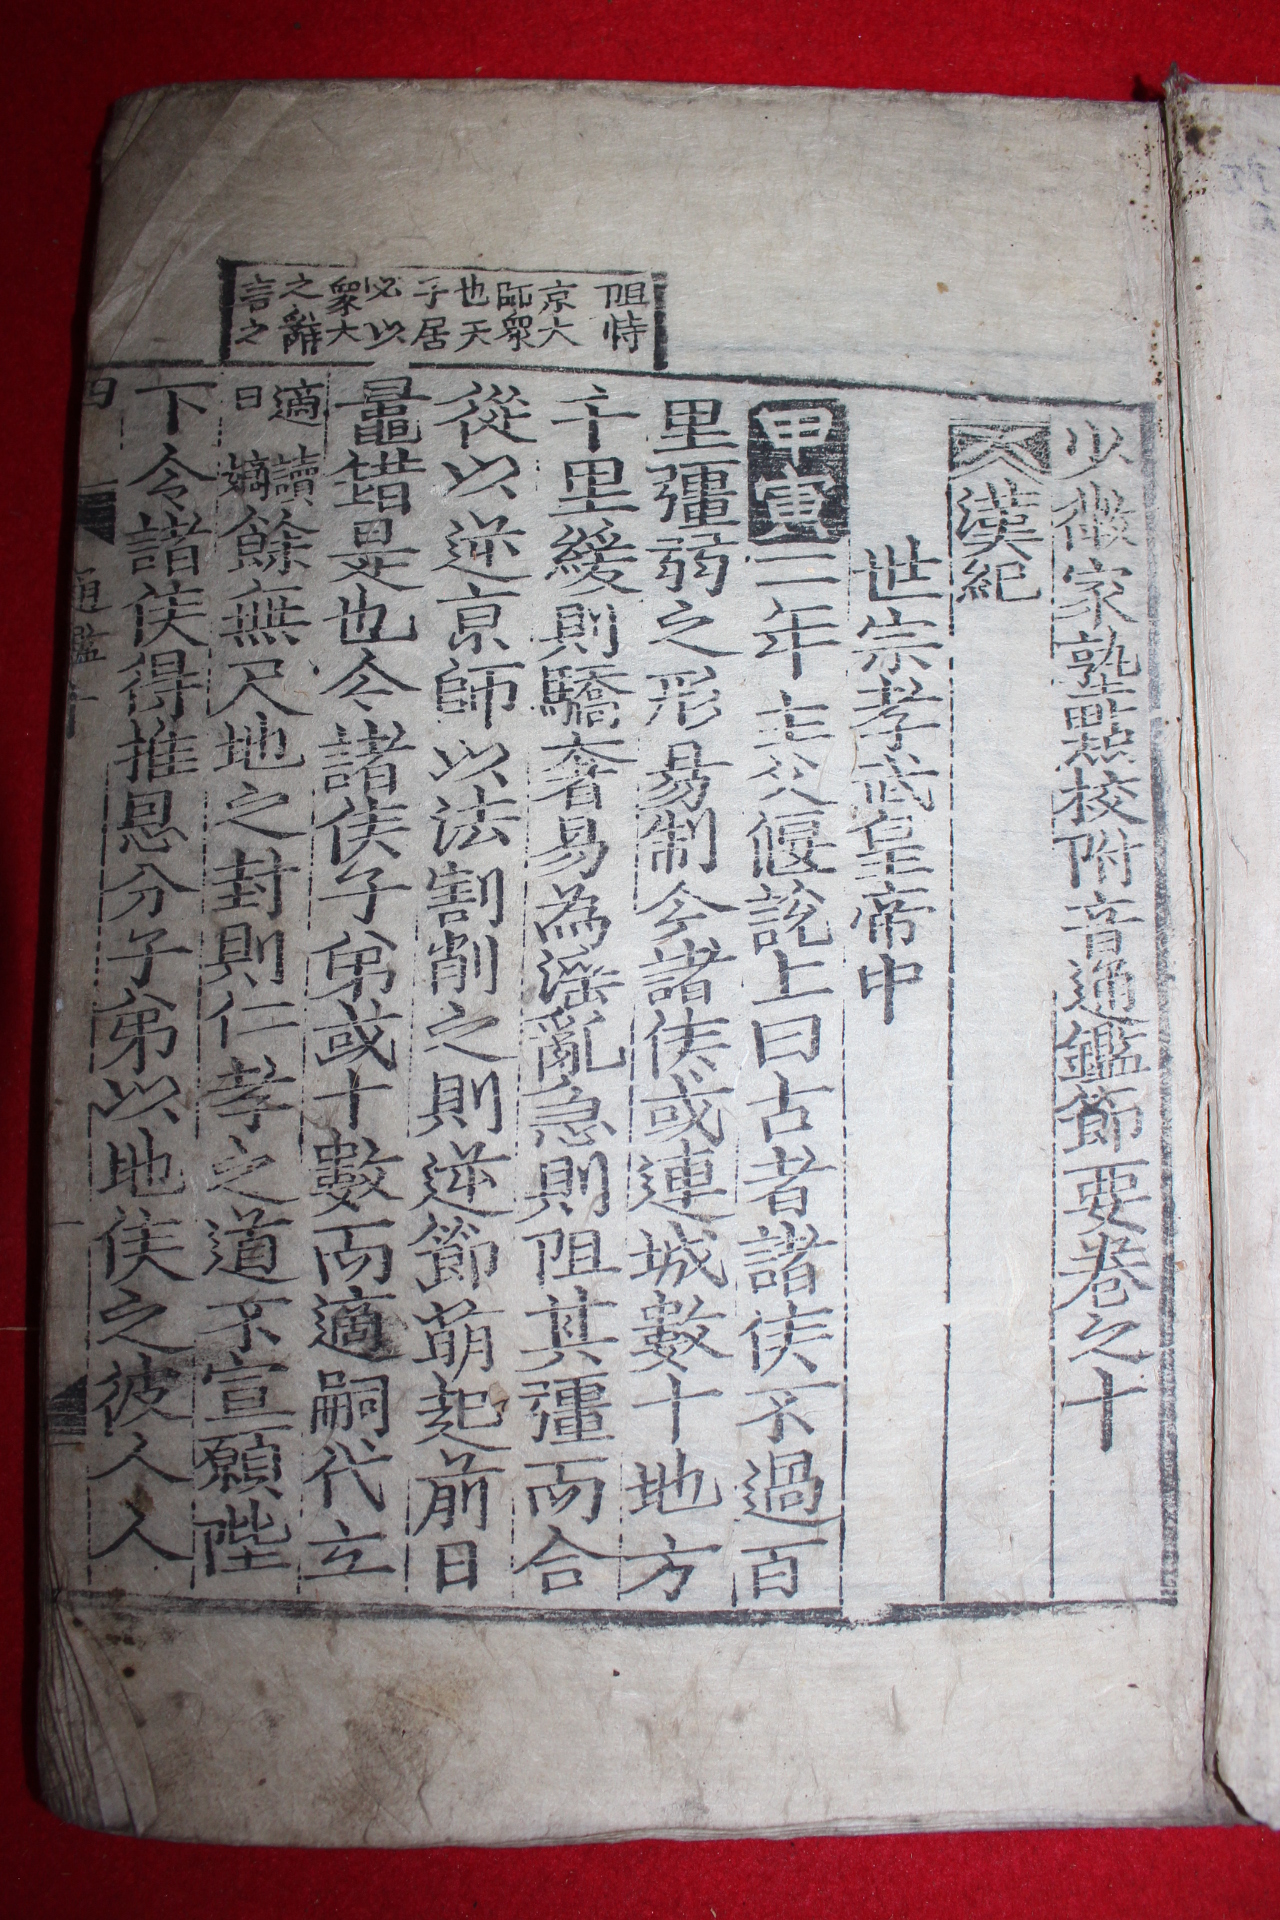 少微家塾點校附音通鑑節要卷之十
漢紀
世宗孝武皇帝中
甲寅二年主父偃說上曰古者諸侯不過百
里彊弱之形易制今諸侯或連城數十地方
千里緩則驕奢易為淫亂急則阻其彊而合
從以逆京師以法割削之則逆節萌起前日
鼂錯是也今諸侯子弟或十數而適嗣代立
適讀曰嫡餘無尺地之封則仁孝之道不宣願陛
下令諸侯得推恩分子弟以地侯之彼人人
阻恃
京大
師衆
也天
子居
必以
衆大
之辭
言之
通鑑十